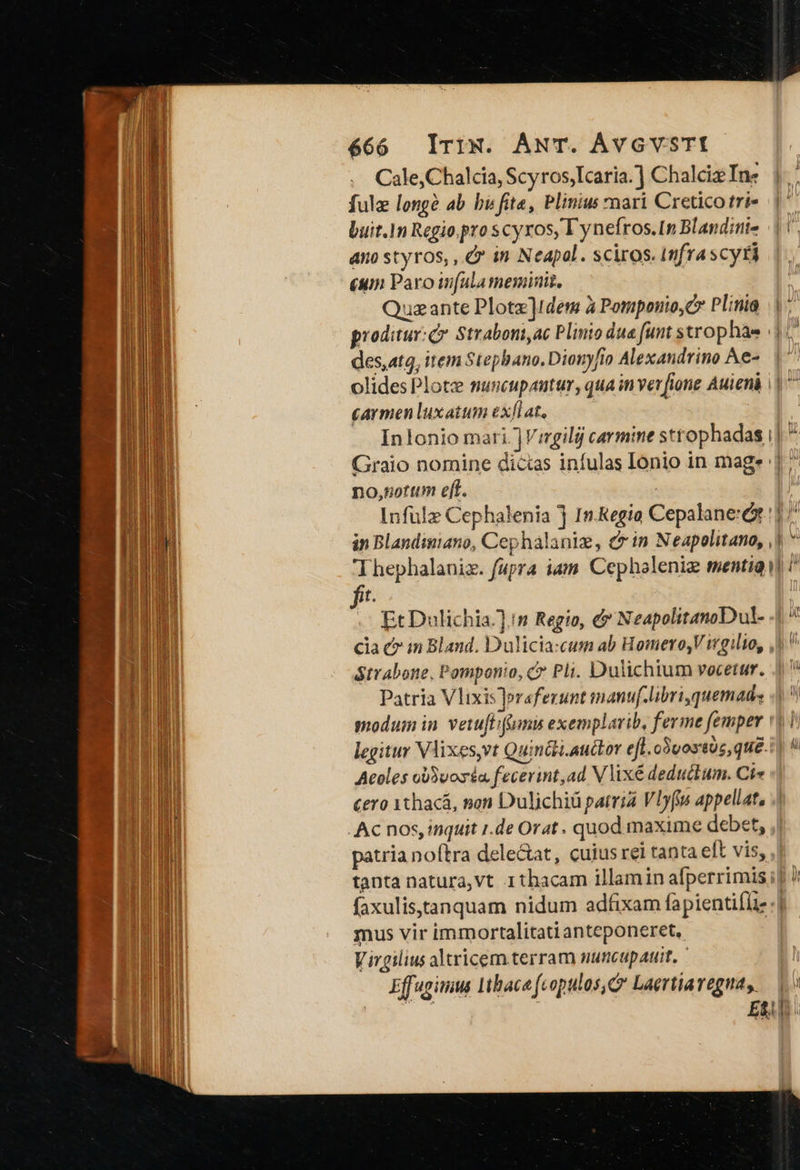 666 ITIN. ANT. AVGVSTI
Cale,Chalcia,Scyros,Icaria.] Chalciæ In-
ſulæ longè ab hu ſitæ, Plinius mari Cretico tri-
buit.In Regio.pro scyros, Tynefros.In Blandinia-
ano styros, , & in Neapol. sciros. infra scyri
cum Paro inſula meminit.
Quæ ante Plotæ]Idem à Pomponio,& Plinio
proditur:& Straboni,ac Plinio duæ ſunt stropha-
des,atq; item Stephano.Dionyſio Alexandrino Ae-
olides Plotæ nuncupantur, qua in verſione Auieni
carmen luxatum exſtat.
In Ionio mari.]Virgilij carmine strophadas
Graio nomine dictas inſulas Ionio in mag-
no,notum eſt.
Inſulæ Cephalenia ] In Regio Cepalane:&
in Blandiniano, Cephalaniæ, & in Neapolitano,
Thephalaniæ. ſupra iam Cephaleniæ mentio
fit.
Et Dulichia.]in Regio, & Neapolitano Dul-
cia & in Bland. Dulicia:cum ab Homero,Virgilio,
Strabone, Pomponio, & Pli. Dulichium vocetur.
Patria Vlixis]præferunt manuſ.libri,quemad-
modum in vetuſtiſsimis exemplarib. ferme ſemper
legitur Vlixes,vt Quincti.auctor eſt.ὀδυσσεὺς,quē
Aeoles ὀυδυσσέα fecerint,ad Vlixē deductum. Ci-
cero ithacā, non Dulichiū patriā Vlyſſis appellat.
Ac nos, inquit 1.de Orat. quod maxime debet,
patria noſtra delectat, cuius rei tanta eſt vis,
tanta natura,vt ithacam illam in aſperrimis
ſaxulis,tanquam nidum adfixam ſapientiſſi-
mus vir immortalitati anteponeret.
Virgilius altricem terram nuncupauit.
Effugimus Ithacæ ſcopulos,& Laertia regna,
Et